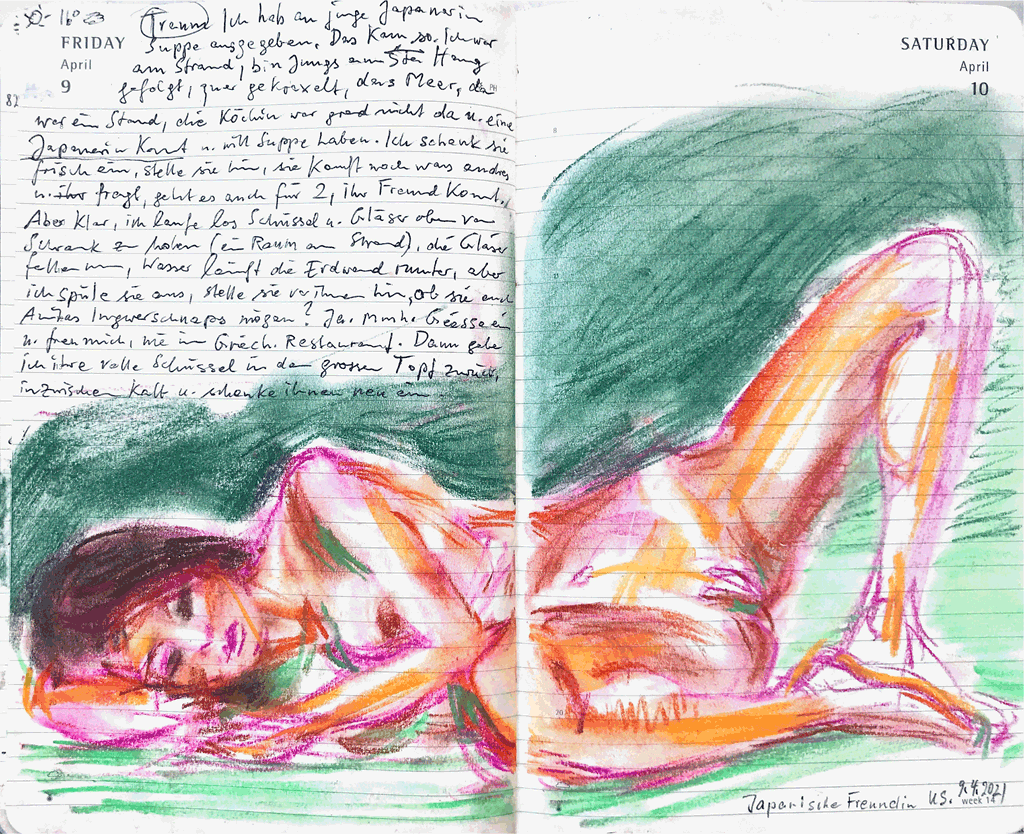 16°
FRIDAY
April
9
82
Traum Ich hab an junge Japanerin
Suppe ausgegeben. Das kam so. Ich war
am Strand, bin Jungs am Hang
gefolgt, quer gekraxelt, das Meer, da
war ein Stand, die Köchin war grad nicht da u. eine
Japanerin kommt u. will Suppe haben. Ich schenk sie
frisch ein, stelle sie hin, sie kauft noch was andres
u. fragt, geht es auch für 2, ihr Freund kommt.
Aber klar, ich laufe los Schüssel u. Gläser oben vom
Schrank zu holen (ein Raum am Strand), die Gläser
fallen um, Wasser läuft die Erdwand runter, aber
ich spüle sie aus, stelle sie vor ihnen hin, ob sie auch
Ingwerschnaps mögen? Ja. ein
u. freu mich, wie im Griech. Restaurant. Dann gebe
ich ihre volle Schüssel in den grossen Topf zurück,
inzwischen kalt u. schenke ihnen neu ein.
SATURDAY
April
10
Japanische Freundin US. 9.4.2021
week 14